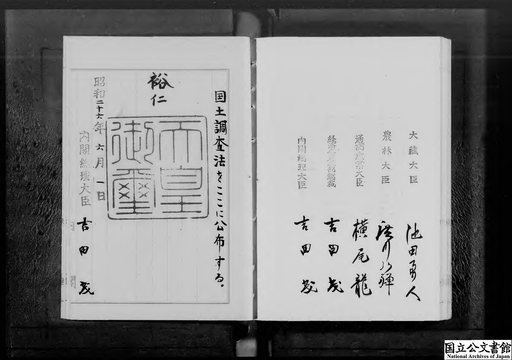 国土調査法をここに公布する。
裕仁
天皇御璽
昭和二十六年六月一日
内閣総理大臣
吉田茂
大蔵大臣
池田勇人
農林大臣
廣川弘禪
横尾龍
吉田茂
内閣総理大臣
吉田茂
国立公文書館
National Archives of Japan